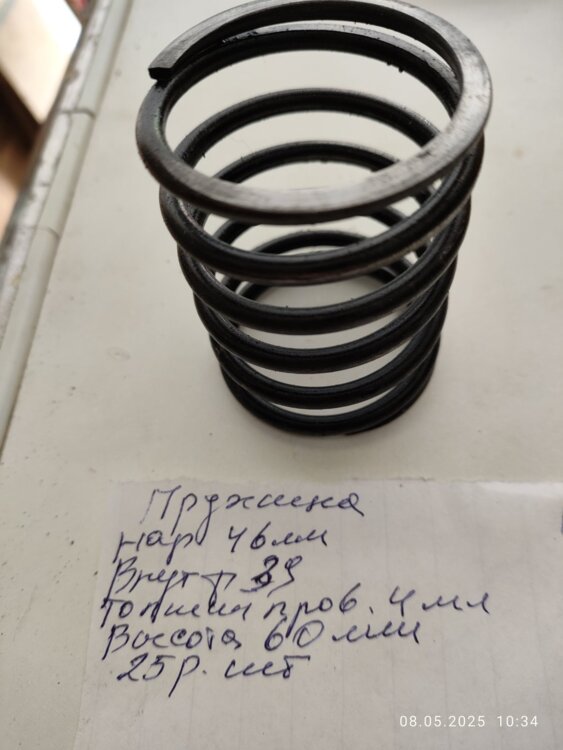 Пружина
нар 46мм
Внутр 39
толщин пров. 4мл
Высота 60мм
25р. шт
08.05.2025 10:34